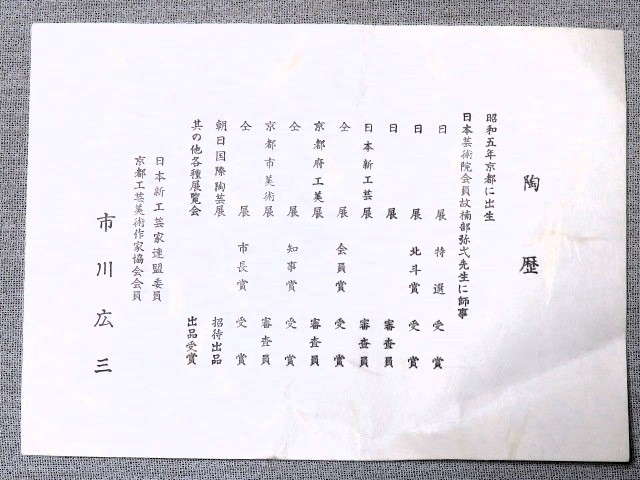 陶歴
昭和五年京都に出生
日本芸術院会員故楠部弥弌先生に師事
日展 特選 受賞
日展 北斗賞 受賞
日展 審査員
日本新工芸展 審査員
仝展 会員賞 受賞
京都府工美展 審査員
仝展 知事賞 受賞
京都市美術展 審査員
仝展 市長賞 受賞
朝日国際陶芸展 招待出品
其の他各種展覧会 出品受賞
日本新工芸家連盟委員
京都工芸美術作家協会会員
市川広三